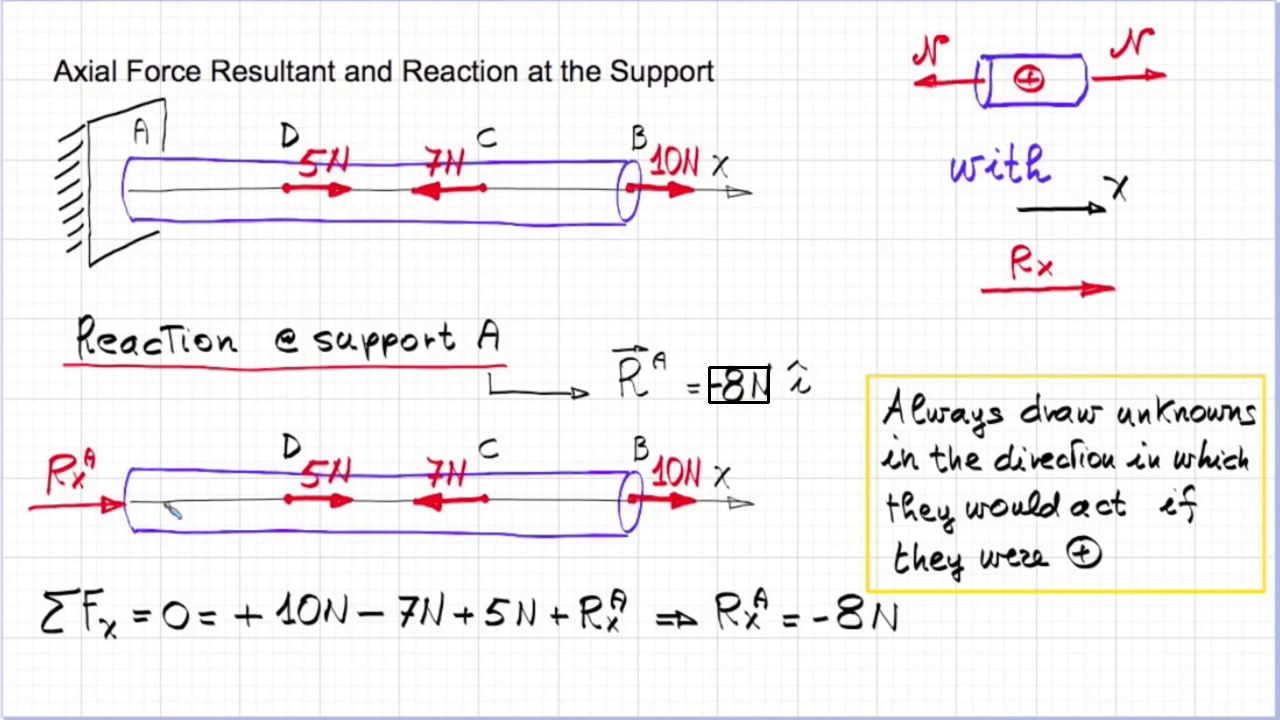 Axial Force Resultant and Reaction at the Support
N ⊕ N
A D 5N 7N C B 10N x
with
x
Rx
Reaction @ support A
R⃗ᴬ = -8N î
RxA D 5N 7N C B 10N x
Always draw unknowns
in the direction in which
they would act if
they were ⊕
ΣFx = 0 = + 10N - 7N + 5N + RxA ⇒ RxA = -8N